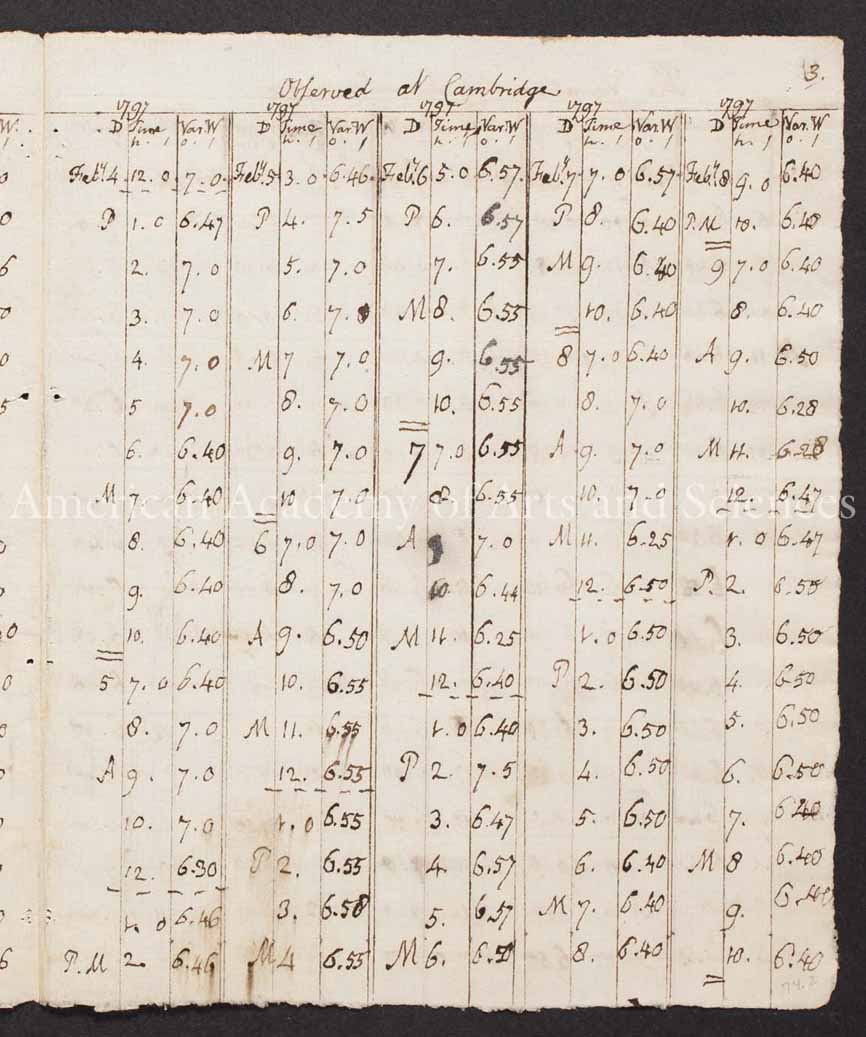 3.
Observed at Cambridge
1797 1797 1797 1797 1797
D Time Var. W D Time Var. W D Time Var. W D Time Var. W D Time Var. W
h. ' o. ' h. ' o. ' h. ' o. ' h. ' o. ' h. ' o. '
Feby. 4 12. 0 7. 0 Feby. 5 3. 0 6.46 Feby. 6 5. 0 6.57 Feby. 7 7. 0 6.57 Feby. 8 9. 0 6.40
P 1. 0 6.47 P 4. 7. 5 P 6. 6.57 P 8. 6.40 P.M 10. 6.40
2. 7. 0 5. 7. 0 7. 6.55 M 9. 6.40 9 7. 0 6.40
3. 7. 0 6. 7. 0 M 8. 6.55 10. 6.40 8. 6.40
4. 7. 0 M 7 7. 0 9. 6.55 8 7. 0 6.40 A 9. 6.50
5 7. 0 8. 7. 0 10. 6.55 8. 7. 0 10. 6.28
6. 6.40 9. 7. 0 7 7. 0 6.55 A 9. 7. 0 M 11. 6.28
M 7. 6.40 10 7. 0 8. 6.55 10. 7. 0 12. 6.47
8. 6.40 6 7. 0 7. 0 A 9 7. 0 M 11. 6.25 1. 0 6.47
9. 6.40 8. 7. 0 10. 6.44 12. 6.50 P. 2. 6.50
10. 6.40 A 9. 6.50 M 11. 6.25 1. 0 6.50 3. 6.50
5 7. 0 6.40 10. 6.55 12. 6.40 P 2. 6.50 4. 6.50
8. 7. 0 M 11. 6.55 1. 0 6.40 3. 6.50 5. 6.50
A 9. 7. 0 12. 6.55 P 2. 7. 5 4. 6.50 6. 6.50
10. 7. 0 1. 0 6.55 3. 6.47 5. 6.50 7. 6.40
12. 6.30 P 2. 6.55 4. 6.57 6. 6.40 M 8 6.40
1. 0 6.46 3. 6.58 5. 6.57 M 7. 6.40 9. 6.40
P.M 2. 6.46 M 4 6.55 M 6. 6.50 8. 6.40 10. 6.40
74.2
American Academy of Arts and Sciences